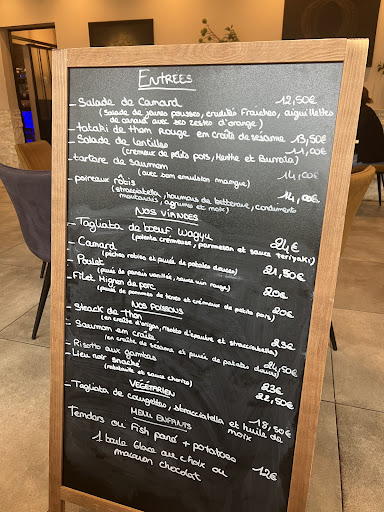 ENTREES
- Salade de Canard 12,50€
(Salade de jeunes pousses, crudités Fraiches, aiguillettes
de canard avec ses zestes d'orange)
- tataki de thon Rouge en croûte de sésame 13,50€
- Salade de lentilles 11,00€
(cremeux de petits pois, Menthe et Burrata)
- tartare de Saumon 14,00€
(avec son emulsion mangue)
- poireaux rôtis 14,00€
(stracciatella, houmous de betterave, condiments
moutardés, agrumes et noix)
NOS VIANDES
- Tagliata de bœuf Wagyu 24€
(polenta crémeuse, parmesan et sauce teriyaki)
- Canard 21,50€
(pêches roties et purée de patates douces)
- Poulet 20€
(purée de panais vanillée, sauce vin rouge)
- Filet Mignon de porc 20€
(purée de pommes de terres et crémeux de petits pois)
NOS POISSONS
- Steack de thon 23€
(en croûte d'origan, risotto d'épeautre et stracciatella)
- Saumon en croûte 24,50€
(en croûte de sésame et purée de patates douces)
- Risotto aux gambas 23€
- Lieu noir snacké 22,50€
(ratatouille et sauce chorizo)
VEGETARIEN
- Tagliata de courgettes, stracciatella et huile de
noix 18,50€
MENU ENFANTS
Tenders ou Fish pané + potatoes
1 boule Glace au choix ou
macaron chocolat 12€